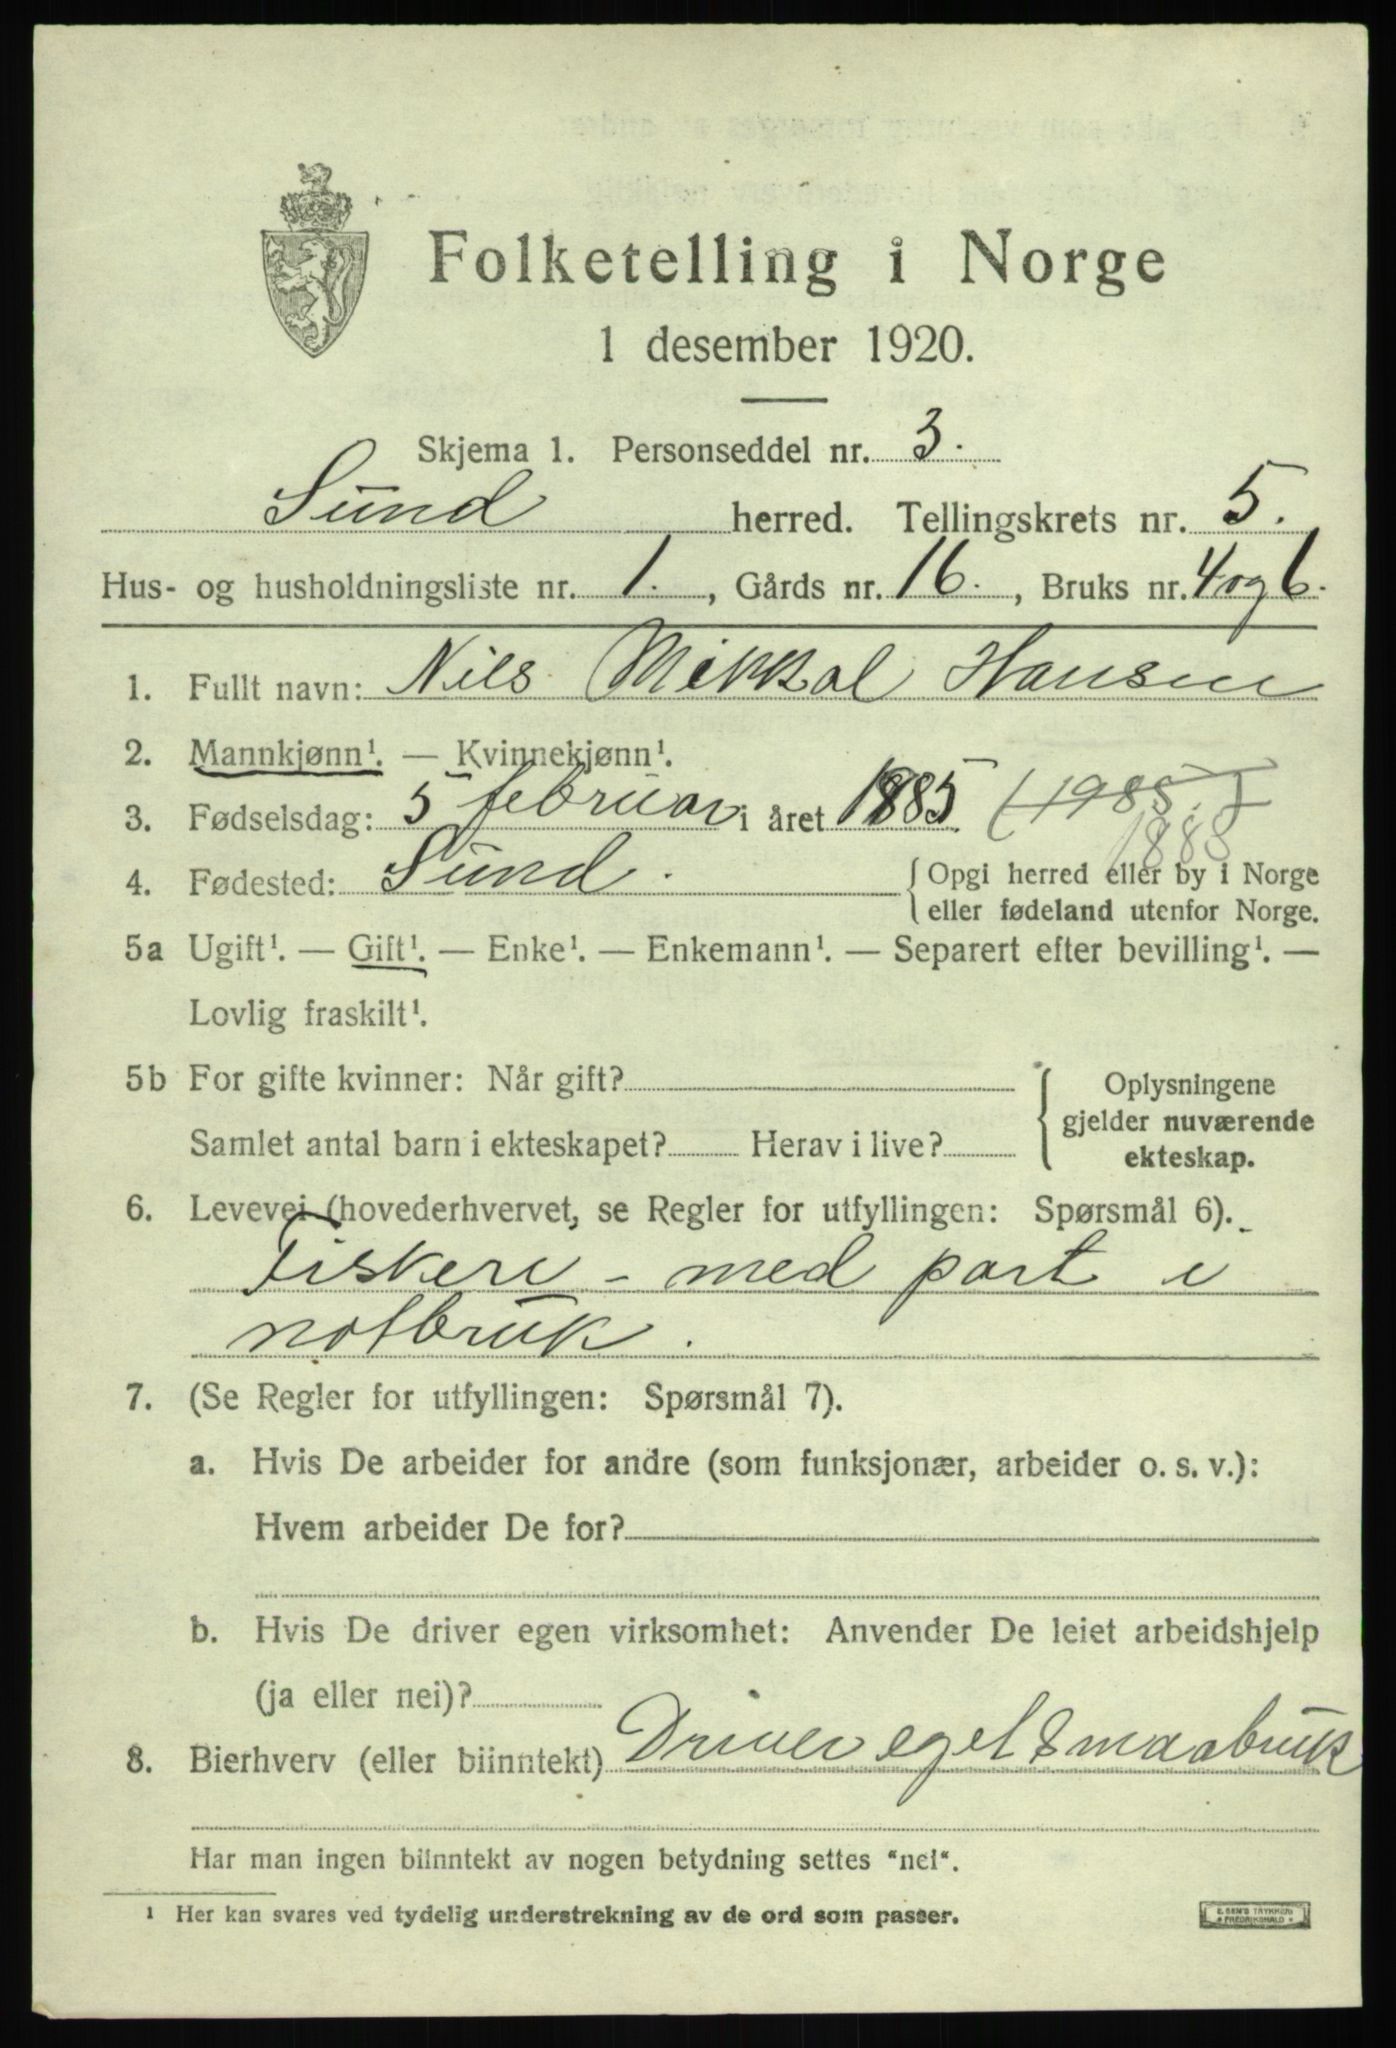 Folketelling i Norge
1 desember 1920.
Skjema 1. Personseddel nr. 3.
Sund herred. Tellingskrets nr. 5.
Hus- og husholdningsliste nr. 1., Gårds nr. 16., Bruks nr. 4 og 6.
1. Fullt navn: Nils Mikkal Hansen
2. Mannkjønn¹. — Kvinnekjønn¹.
3. Fødselsdag: 5 februar i året 1885 (1985.)
1888
4. Fødested: Sund. { Opgi herred eller by i Norge
eller fødeland utenfor Norge.
5a Ugift¹. — Gift¹. — Enke¹. — Enkemann¹. — Separert efter bevilling¹. —
Lovlig fraskilt¹.
5b For gifte kvinner: Når gift? { Oplysningene
gjelder nuværende
Samlet antal barn i ekteskapet? Herav i live?
ekteskap.
6. Levevei (hovederhvervet, se Regler for utfyllingen: Spørsmål 6).
Fiskeri - med part i
notbruk.
7. (Se Regler for utfyllingen: Spørsmål 7).
a. Hvis De arbeider for andre (som funksjonær, arbeider o. s. v.):
Hvem arbeider De for?
b. Hvis De driver egen virksomhet: Anvender De leiet arbeidshjelp
(ja eller nei)?
8. Bierhverv (eller biinntekt) Driver eget Smaabruk
Har man ingen biinntekt av nogen betydning settes "nei".
¹ Her kan svares ved tydelig understrekning av de ord som passer.